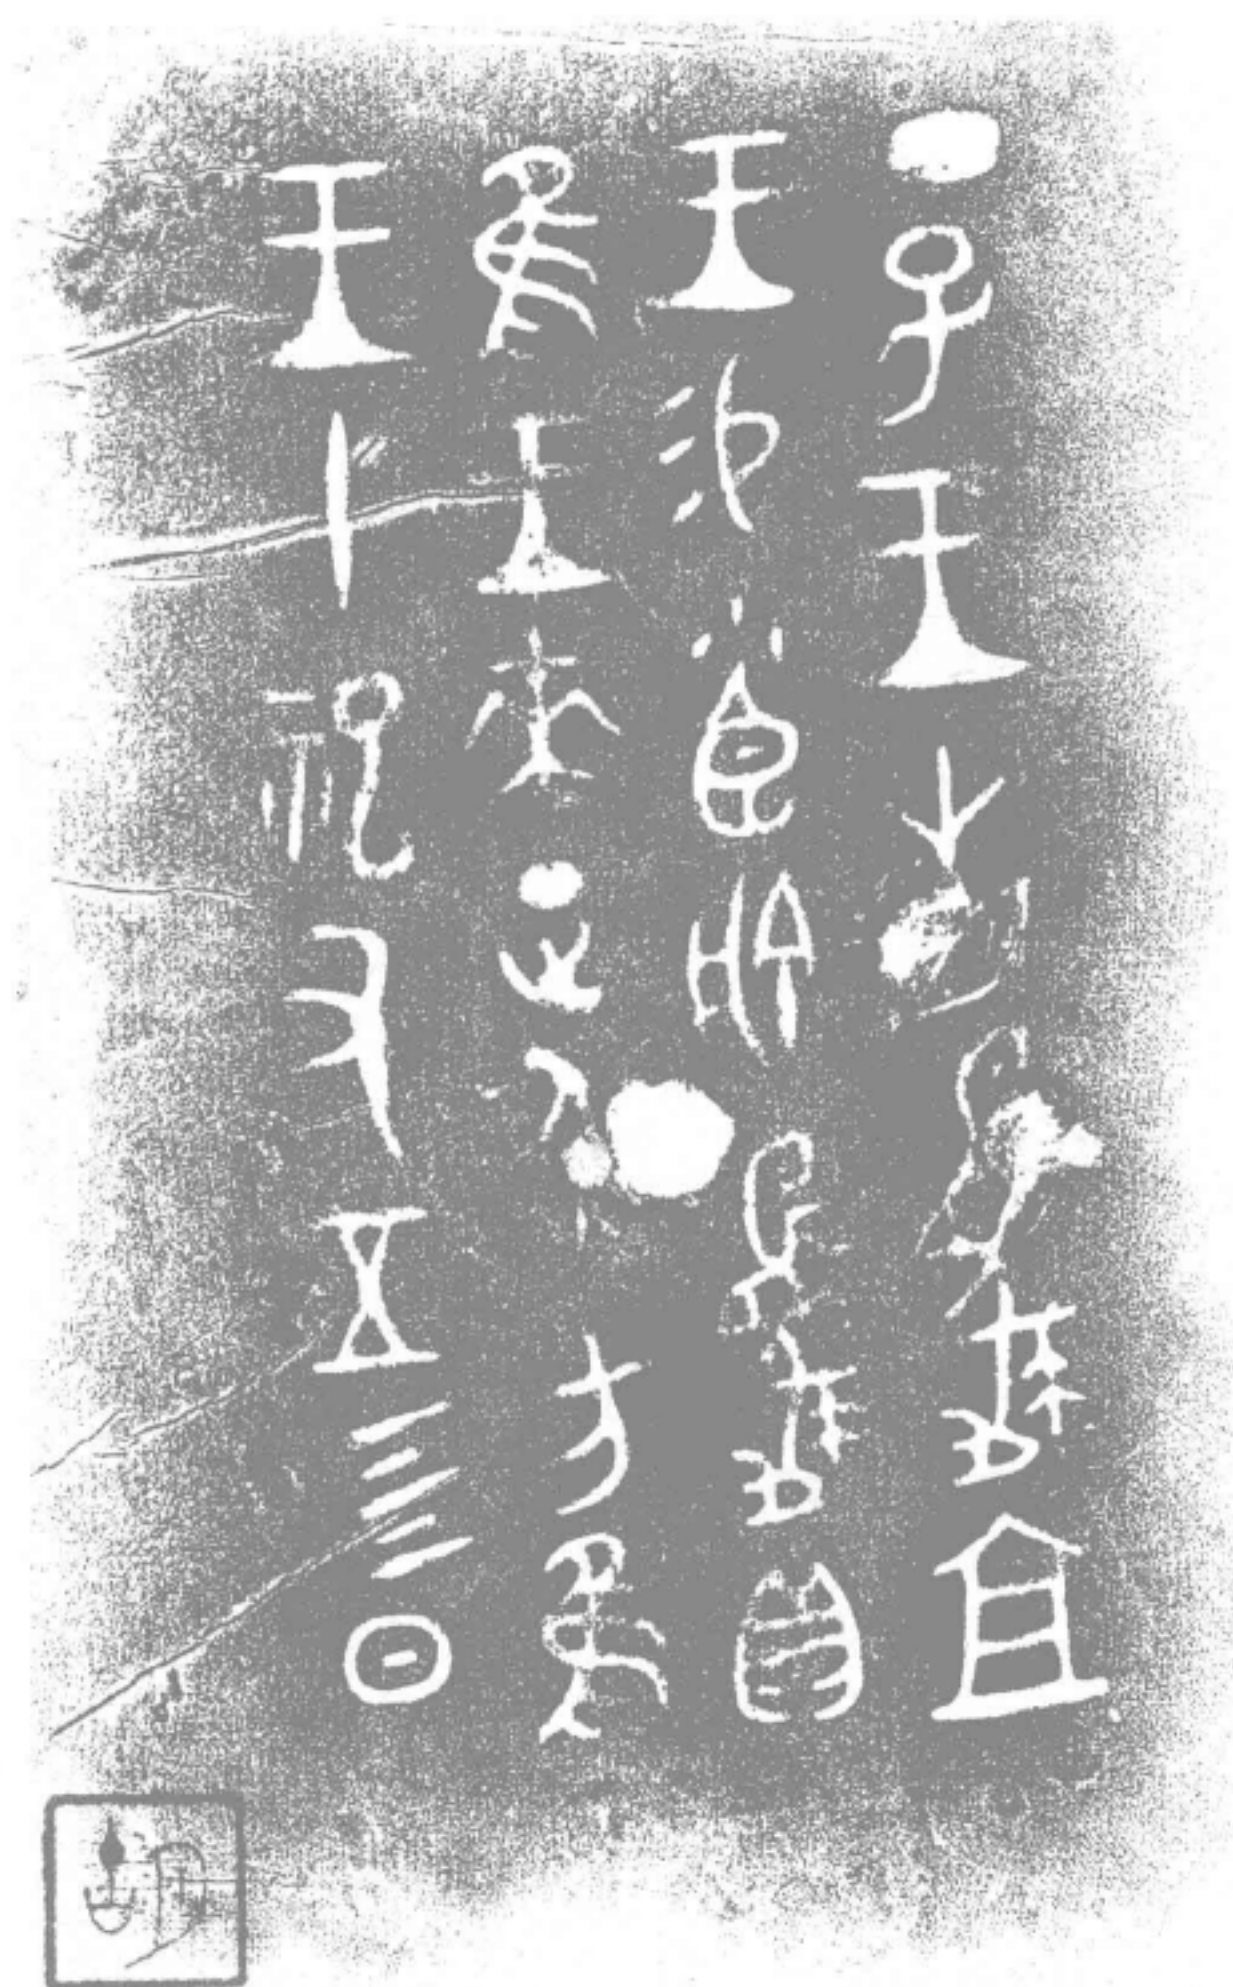 丁子王省夔且
王易小臣俞夔貝
隹王來正人方隹
王十祀又五肜日